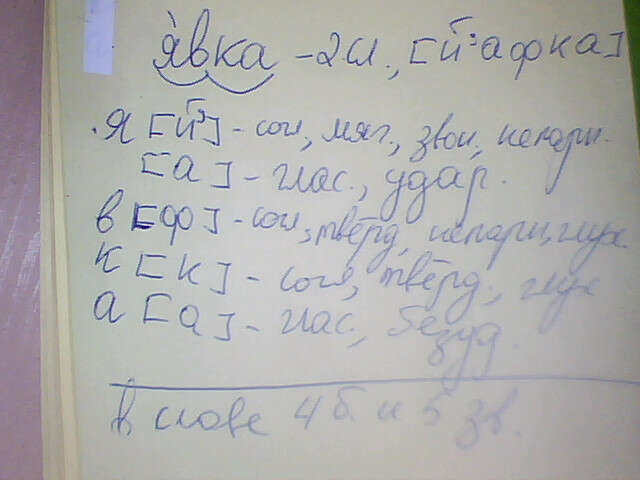 я́вка – 2 сл., [й'афка]
Я [й'] – согл, мяг., звон, непарн.
[а] – глас., удар.
в [ф] – согл, твёрд, непарн, глух.
к [к] – согл, твёрд., глух
а [а] – глас, безуд.
в слове 4 б. и 5 зв.